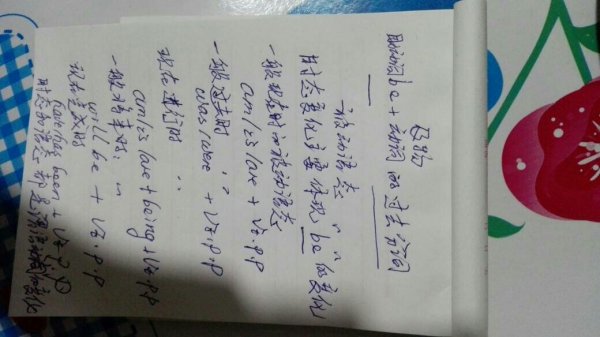 及物
助动词be + 动词的过去分词
被动语态
时态变化主要体现"be"的变化
一般现在时的被动语态
am/is/are + Vt.p.p
一般过去时 〃
was/were + Vt.p.p
现在进行时 〃
am/is/are + being + Vt.p.p
一般将来时: 〃
will be + Vt.p.p
现在完成时
have/has been + Vt.p.p
时态和语态都是谓语动词的变化